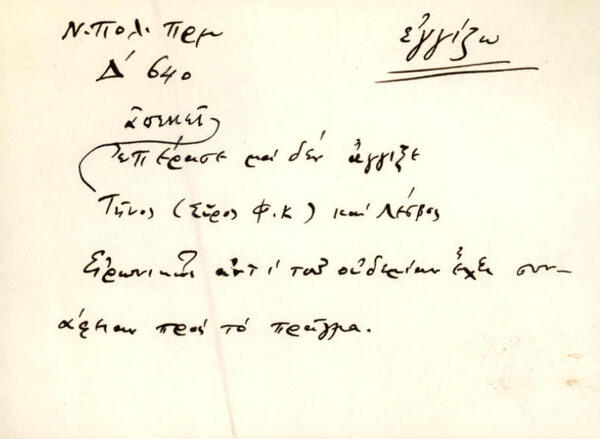 Ν. Πολ. Πρμ
ἐγγίζω
Δ' 640
ἀπεκεῖ
ἐπέρασε καὶ δὲν ἄγγιξε
Τῆνος (Σῦρος Φ.Κ) καὶ Λέσβος
Εἰρωνικῶς ἀντὶ τοῦ οὐδεμίαν ἔχει συν-
άφειαν πρὸς τὸ πρᾶγμα.